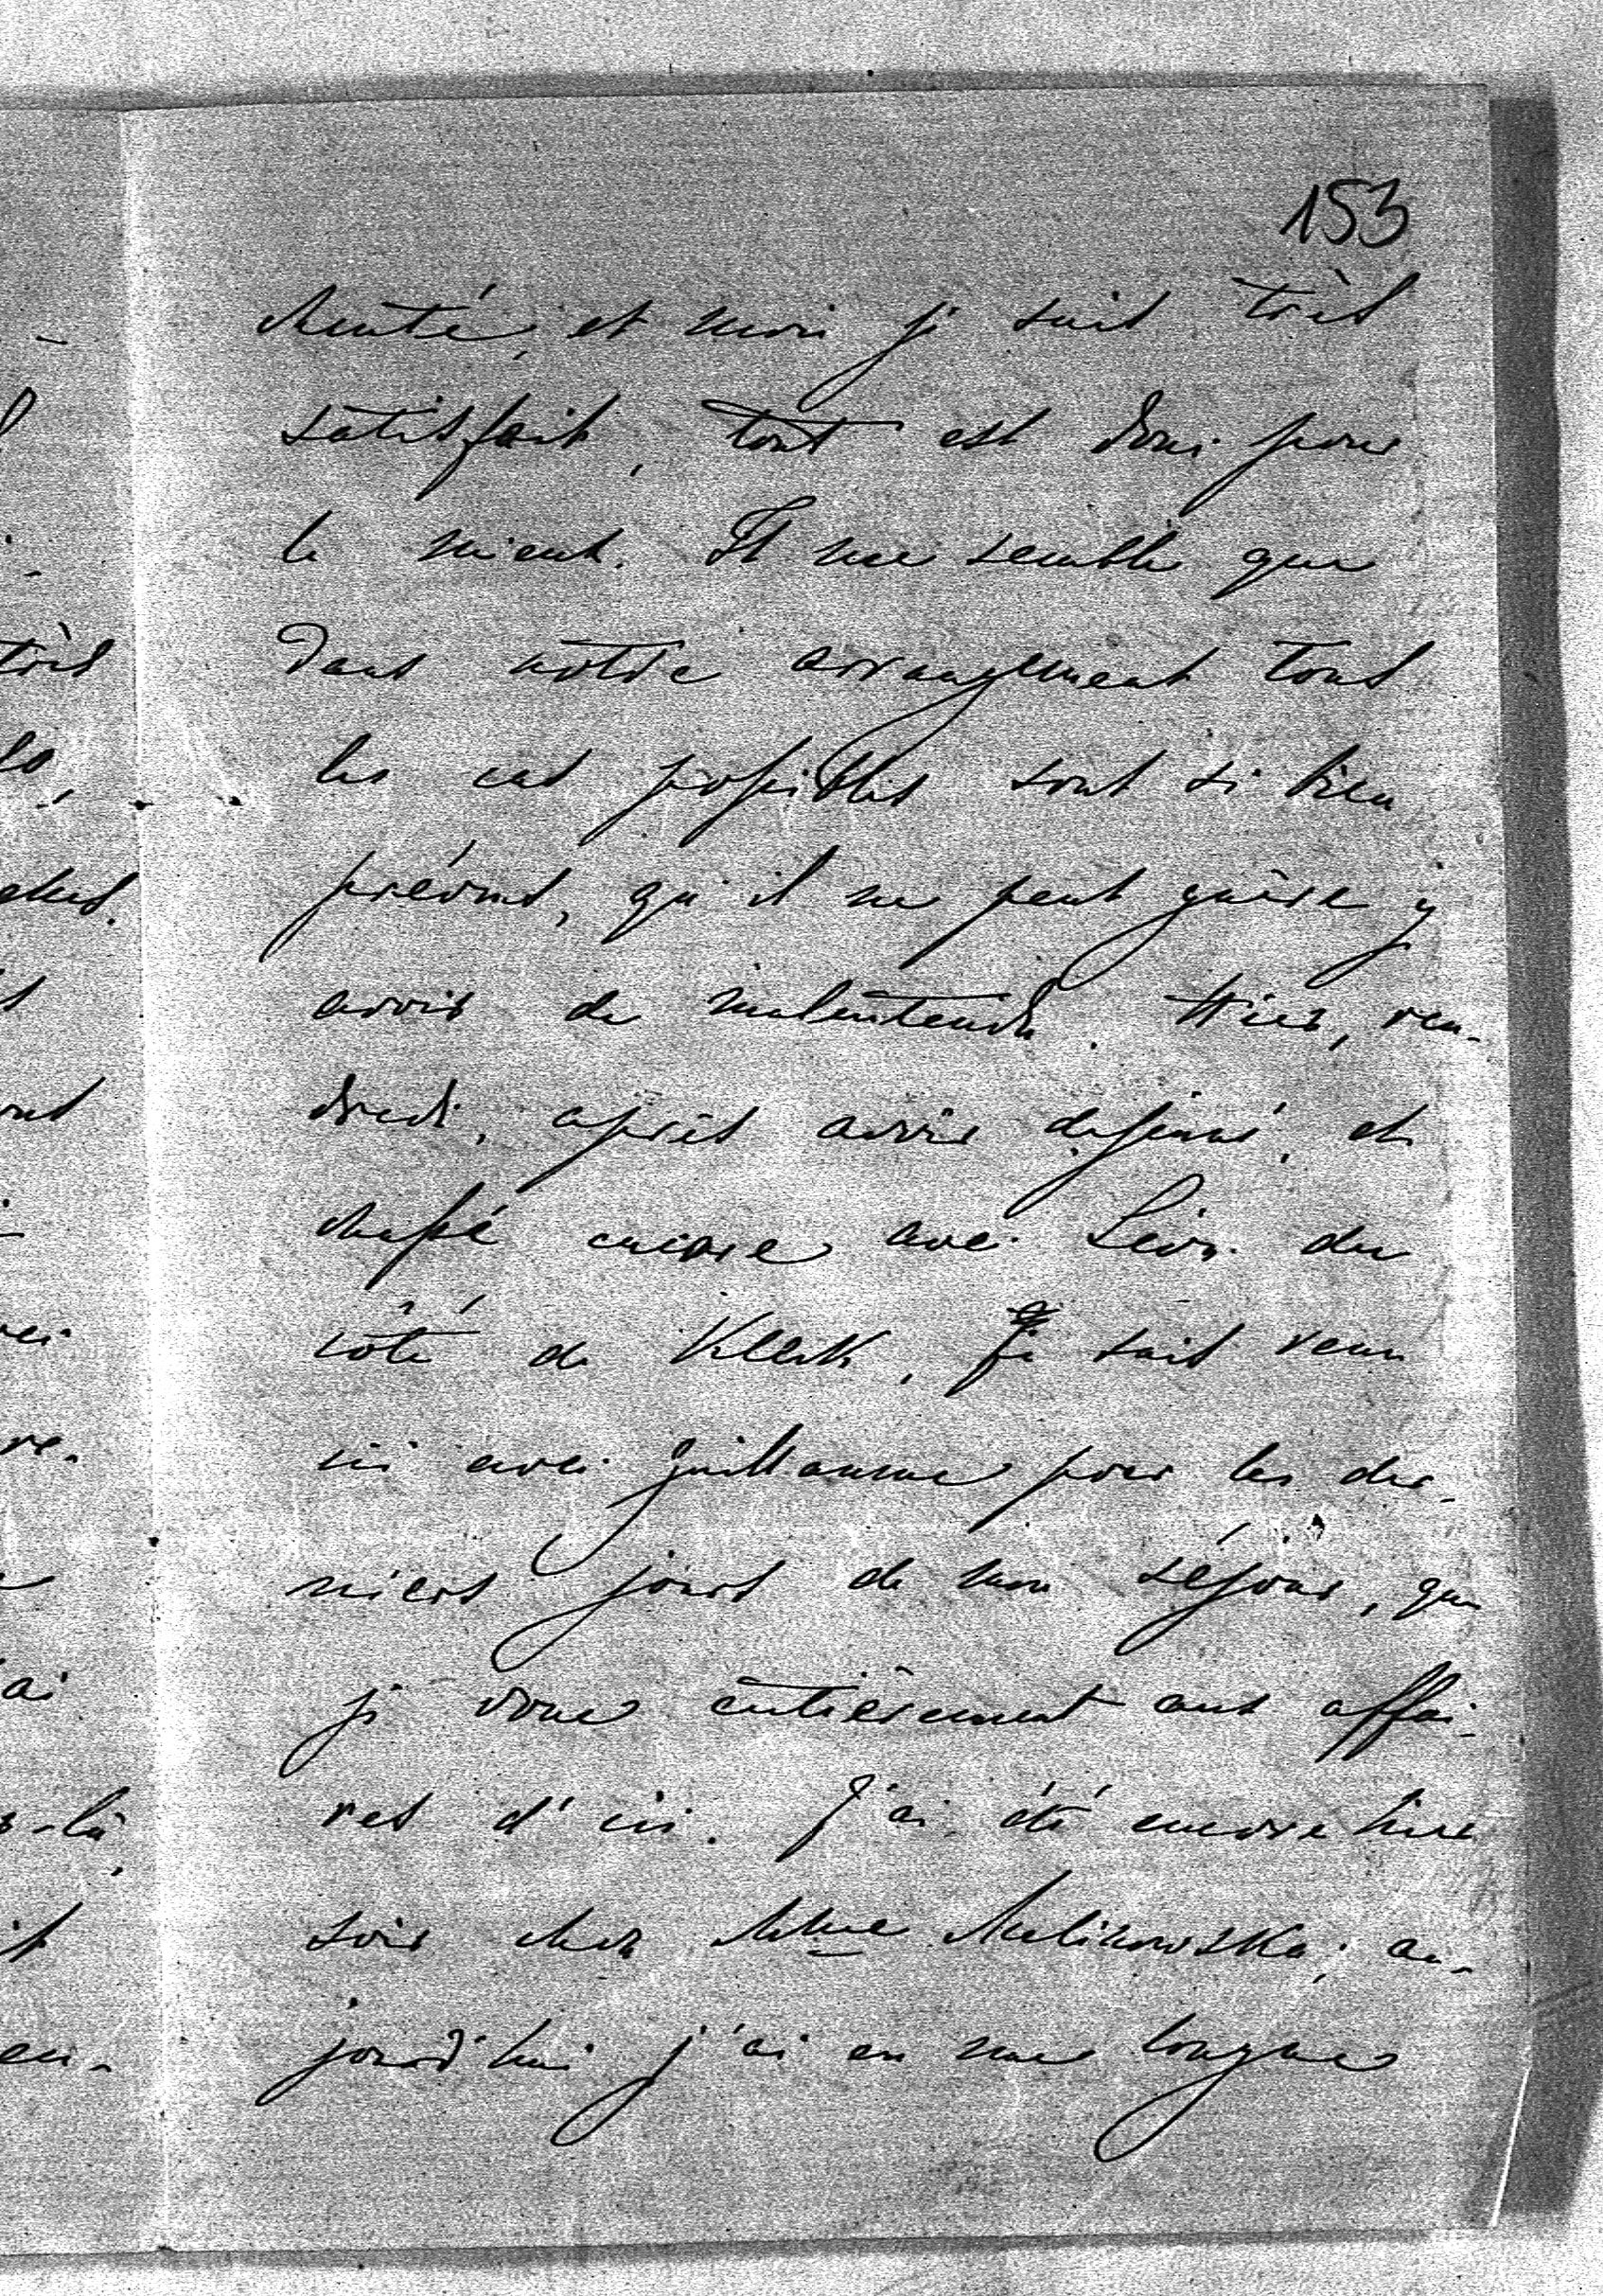 153
chanté, et moi je suis très
satisfait, tout est donc pour
le mieux. Il me semble que
dans notre arrangement tous
les cas possibles sont si bien
prévus, qu'il ne peut guère y
avoir de malentendu. Hier, ven-
dredi, après avoir dejeuné, et
chassé encore avec Léon du
côté de Kleck, je suis venu
ici avec Guillaume pour les der-
niers jours de mon séjour, que
je voue entièrement aux affai-
res d'ici. J'ai été encore hier
soir chez Mme Malinowska; au-
jourd'hui j'ai eu une longue
très
plus.
ai
-là,
en-